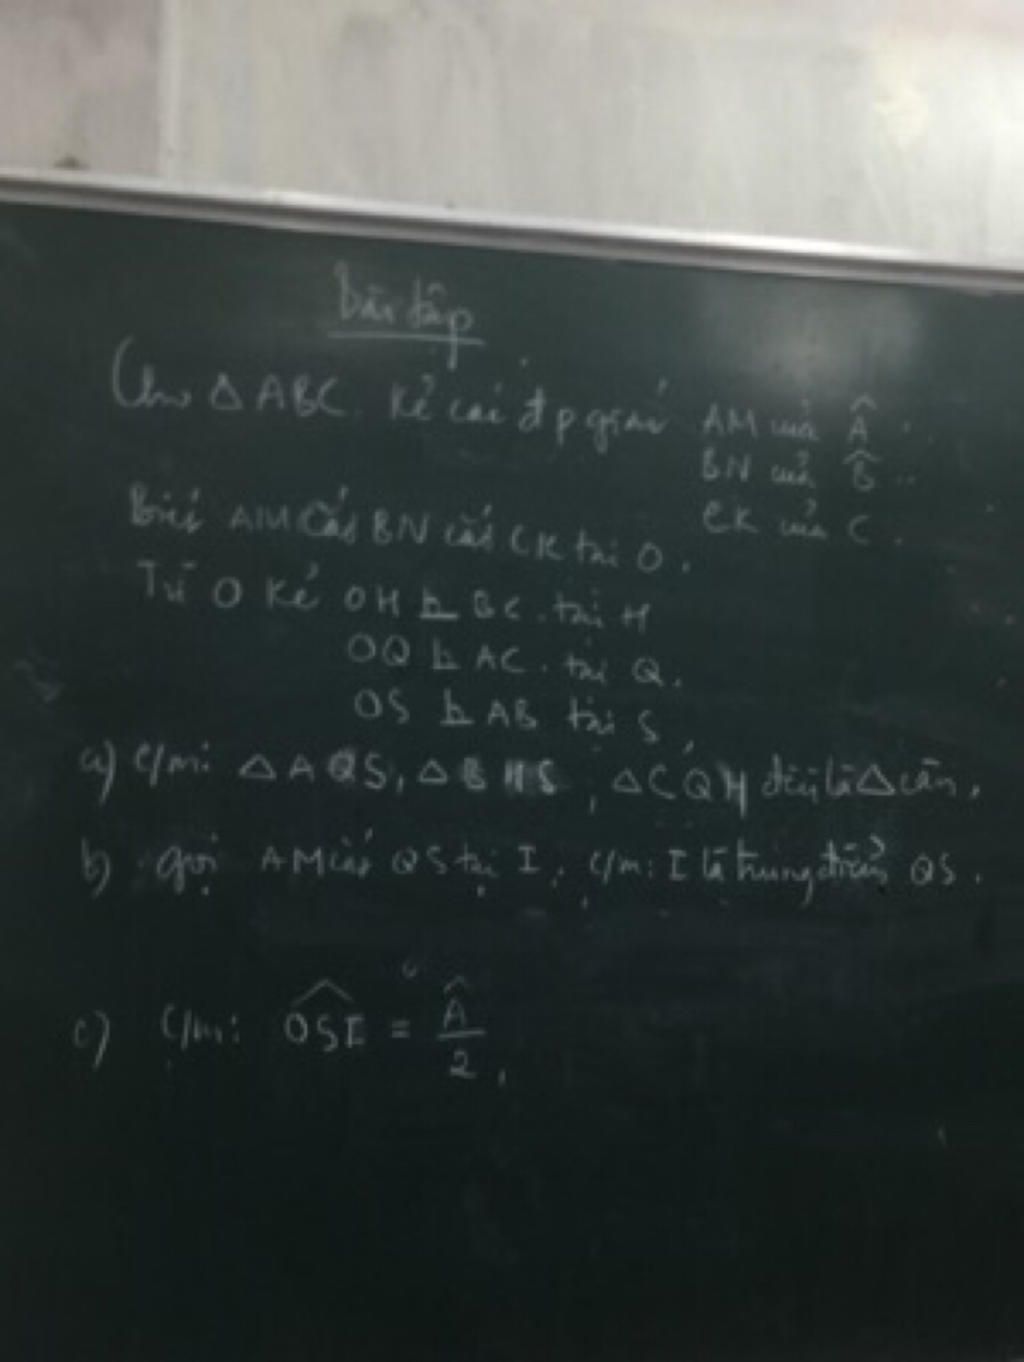 Bài tập
Cho △ABC. Kẻ các đ p giác AM của Â
BN của B̂
CK của C.
Biết AM cắt BN cắt CK tại O.
Từ O kẻ OH ⊥ BC. tại H
OQ ⊥ AC. tại Q.
OS ⊥ AB tại S,
a) C/m: △AQS, △BHS, △CQH đều là △ cân.
b) gọi AM cắt QS tại I. C/m: I là trung điểm QS.
c) C/m: OSI = Â/2